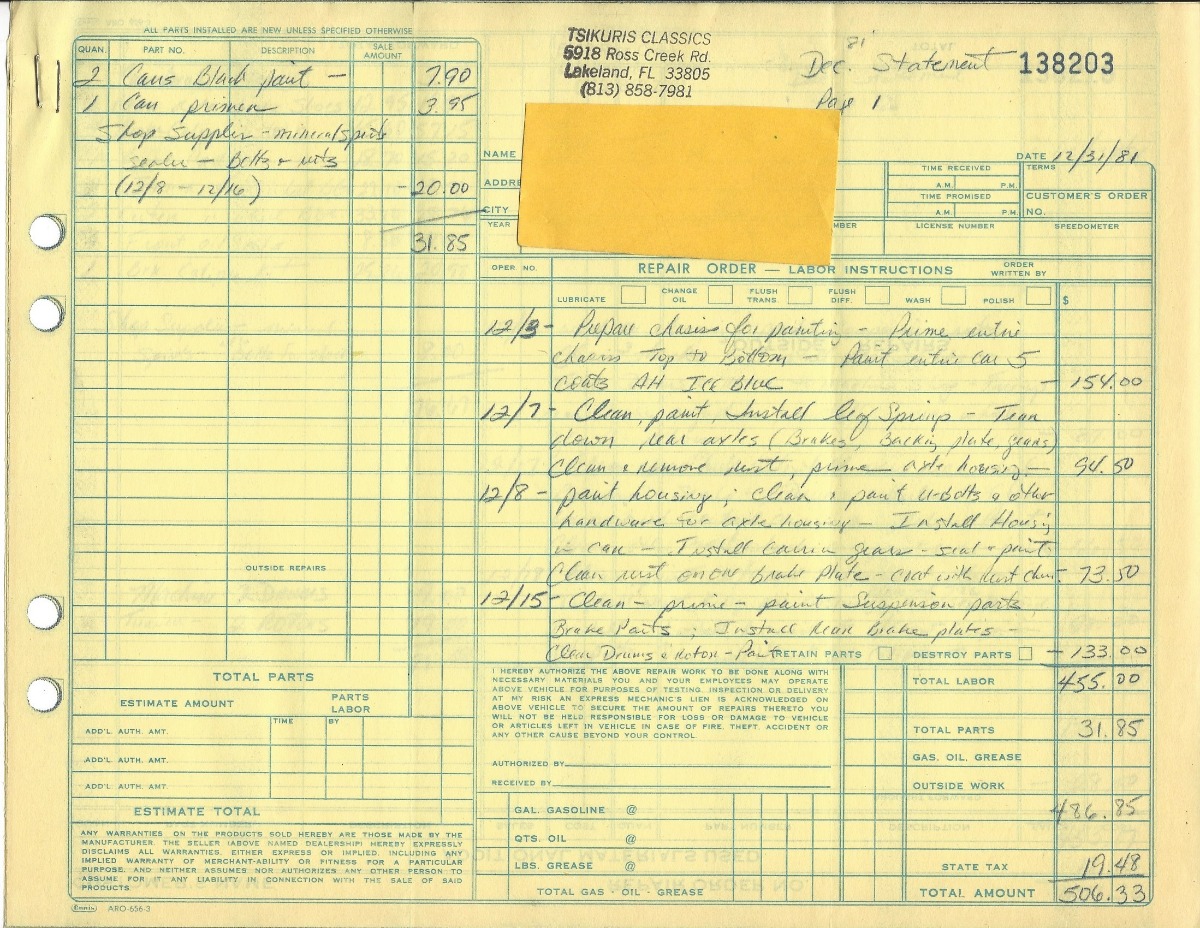 ALL PARTS INSTALLED ARE NEW UNLESS SPECIFIED OTHERWISE
QUAN. PART NO. DESCRIPTION SALE AMOUNT
2 Cans Black paint — 7.90
1 Can primer 3.95
Shop Supplies - mineral spirits
sealer — Bolts & nuts
(12/8 - 12/16) - 20.00
31.85
OUTSIDE REPAIRS
TOTAL PARTS
ESTIMATE AMOUNT PARTS LABOR
TIME BY
ADD'L. AUTH. AMT.
ADD'L. AUTH. AMT.
ADD'L. AUTH. AMT.
ESTIMATE TOTAL
ANY WARRANTIES ON THE PRODUCTS SOLD HEREBY ARE THOSE MADE BY THE
MANUFACTURER. THE SELLER (ABOVE NAMED DEALERSHIP) HEREBY EXPRESSLY
DISCLAIMS ALL WARRANTIES, EITHER EXPRESS OR IMPLIED, INCLUDING ANY
IMPLIED WARRANTY OF MERCHANT-ABILITY OR FITNESS FOR A PARTICULAR
PURPOSE, AND NEITHER ASSUMES NOR AUTHORIZES ANY OTHER PERSON TO
ASSUME FOR IT ANY LIABILITY IN CONNECTION WITH THE SALE OF SAID
PRODUCTS
Ennis ARO-656-3
TSIKURIS CLASSICS
5918 Ross Creek Rd.
Lakeland, FL 33805
(813) 858-7981
81'
Dec. Statement 138203
Page 1
NAME DATE 12/31/81
ADDRE
CITY
TIME RECEIVED TERMS
A.M. P.M.
TIME PROMISED CUSTOMER'S ORDER
A.M. P.M. NO.
YEAR MBER LICENSE NUMBER SPEEDOMETER
OPER NO. REPAIR ORDER — LABOR INSTRUCTIONS ORDER WRITTEN BY
LUBRICATE CHANGE OIL FLUSH TRANS. FLUSH DIFF. WASH POLISH $
12/3 - Prepare chasis for painting - Prime entire
chasis Top to Bottom — Paint entire car 5
coats AH Ice Blue — 154.00
12/7 - Clean, paint, Install leaf Springs - Tear
down rear axles (Brakes, Backing plate, gears)
Clean & remove rust, prime axle housing — 94.50
12/8 - paint housing; Clean & paint U-Bolts & other
hardware for axle housing — Install Housing
in car — Install gears - seal & paint
Clean rust on one brake Plate - coat with rust - 73.50
12/15 - Clean - prime - paint Suspension parts,
Brake Parts; Install Rear Brake plates -
Clean Drums & rotors - Paint RETAIN PARTS DESTROY PARTS — 133.00
I HEREBY AUTHORIZE THE ABOVE REPAIR WORK TO BE DONE ALONG WITH
NECESSARY MATERIALS YOU AND YOUR EMPLOYEES MAY OPERATE
ABOVE VEHICLE FOR PURPOSES OF TESTING, INSPECTION OR DELIVERY
AT MY RISK AN EXPRESS MECHANIC'S LIEN IS ACKNOWLEDGED ON
ABOVE VEHICLE TO SECURE THE AMOUNT OF REPAIRS THERETO YOU
WILL NOT BE HELD RESPONSIBLE FOR LOSS OR DAMAGE TO VEHICLE
OR ARTICLES LEFT IN VEHICLE IN CASE OF FIRE, THEFT, ACCIDENT OR
ANY OTHER CAUSE BEYOND YOUR CONTROL.
AUTHORIZED BY
RECEIVED BY
GAL. GASOLINE @
QTS. OIL @
LBS. GREASE @
TOTAL GAS - OIL - GREASE
TOTAL LABOR 455.00
TOTAL PARTS 31.85
GAS, OIL, GREASE
OUTSIDE WORK
486.85
STATE TAX 19.48
TOTAL AMOUNT 506.33